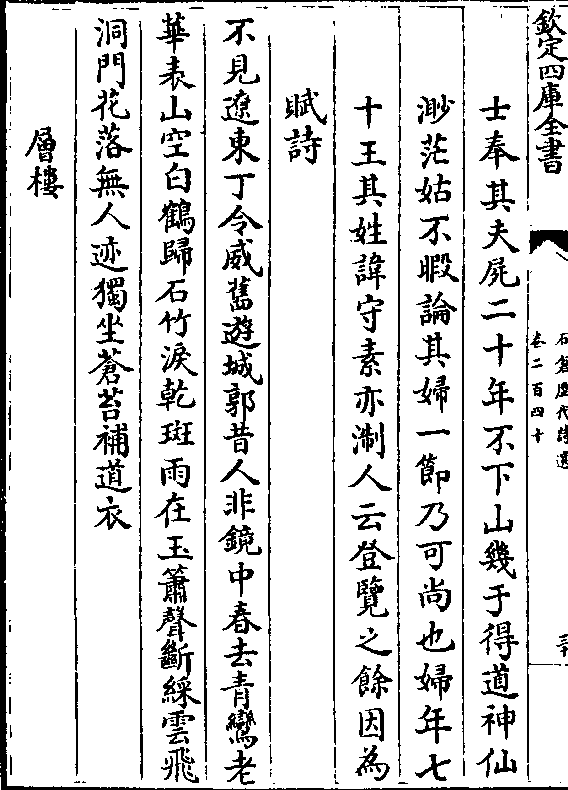 欽定四庫全書
石倉歷代詩選
卷二百四十
士奉其夫屍二十年不下山幾于得道神仙
渺茫姑不暇論其婦一節乃可尚也婦年七
十王其姓諱守素亦淛人云登覽之餘因為
賦詩
不見遼東丁令威舊遊城郭昔人非鏡中春去青鸞老
華表山空白鶴歸石竹淚乾斑雨在玉簫聲斷綵雲飛
洞門花落無人迹獨坐蒼苔補道衣
層樓